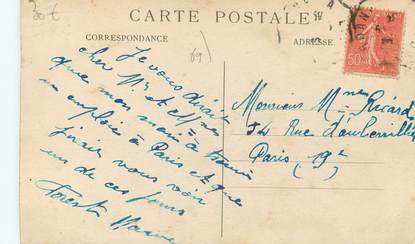 30€
CARTE POSTALE
CORRESPONDANCE
ADRESSE
69)
Je vous dirait
cher Mr et Mme
que mon mari à trouvé
un emploie à Paris et que
j'irait vous voir
un de ces jours
Monsieur Mme Ricard
34 Rue d'aubervillier
Paris 19e
50